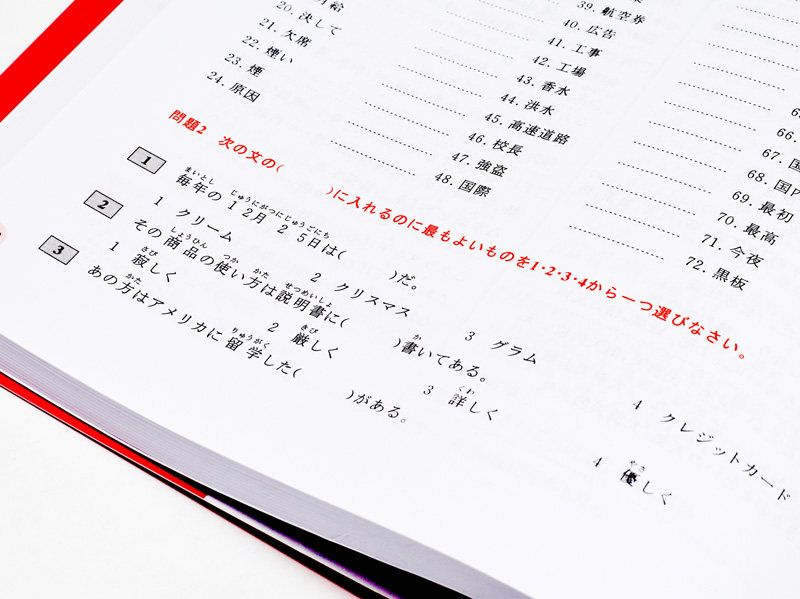 給
20. 決して
21. 欠席
22. 煙い
23. 煙
24. 原因
39. 航空券
40. 広告
41. 工事
42. 工場
43. 香水
44. 洪水
45. 高速道路
46. 校長
47. 強盗
48. 国際
66.
67. 国
68. 国
69. 最初
70. 最高
71. 今夜
72. 黒板
問題2 次の文の( )に入れるのに最もよいものを1・2・3・4から一つ選びなさい。
まいとし じゅうにがつにじゅうごにち
1 毎年の12月25日は( )だ。
1 クリーム 2 クリスマス 3 グラム 4 クレジットカード
しょうひん つか かた せつめいしょ か
2 その商品の使い方は説明書に( )書いてある。
さび きび くわ やさ
1 寂しく 2 厳しく 3 詳しく 4 優しく
かた りゅうがく
3 あの方はアメリカに留学した( )がある。